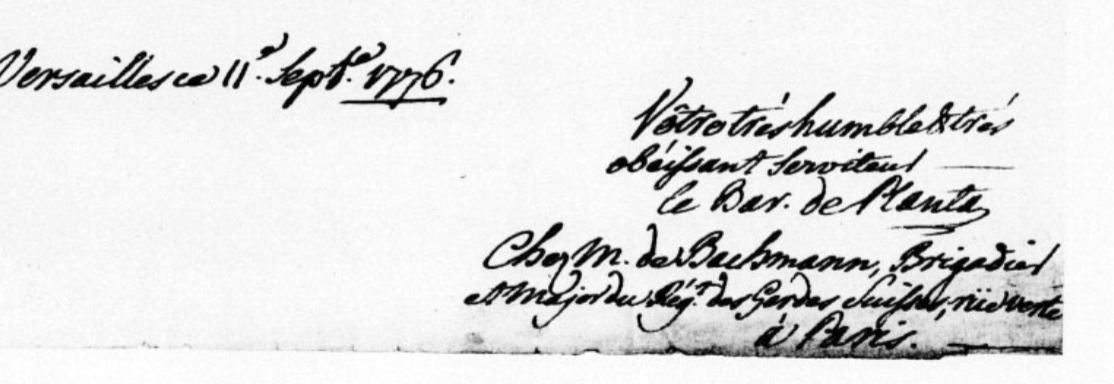 Versailles ce 11.e Sept.e 1776.
Vôtre très humble & très
obéissant Serviteur
le Bar. de Planta
Chez M. de Bachmann, Brigadier
et Major du Rég.t des Gardes Suisses, rüe verte
à Paris.